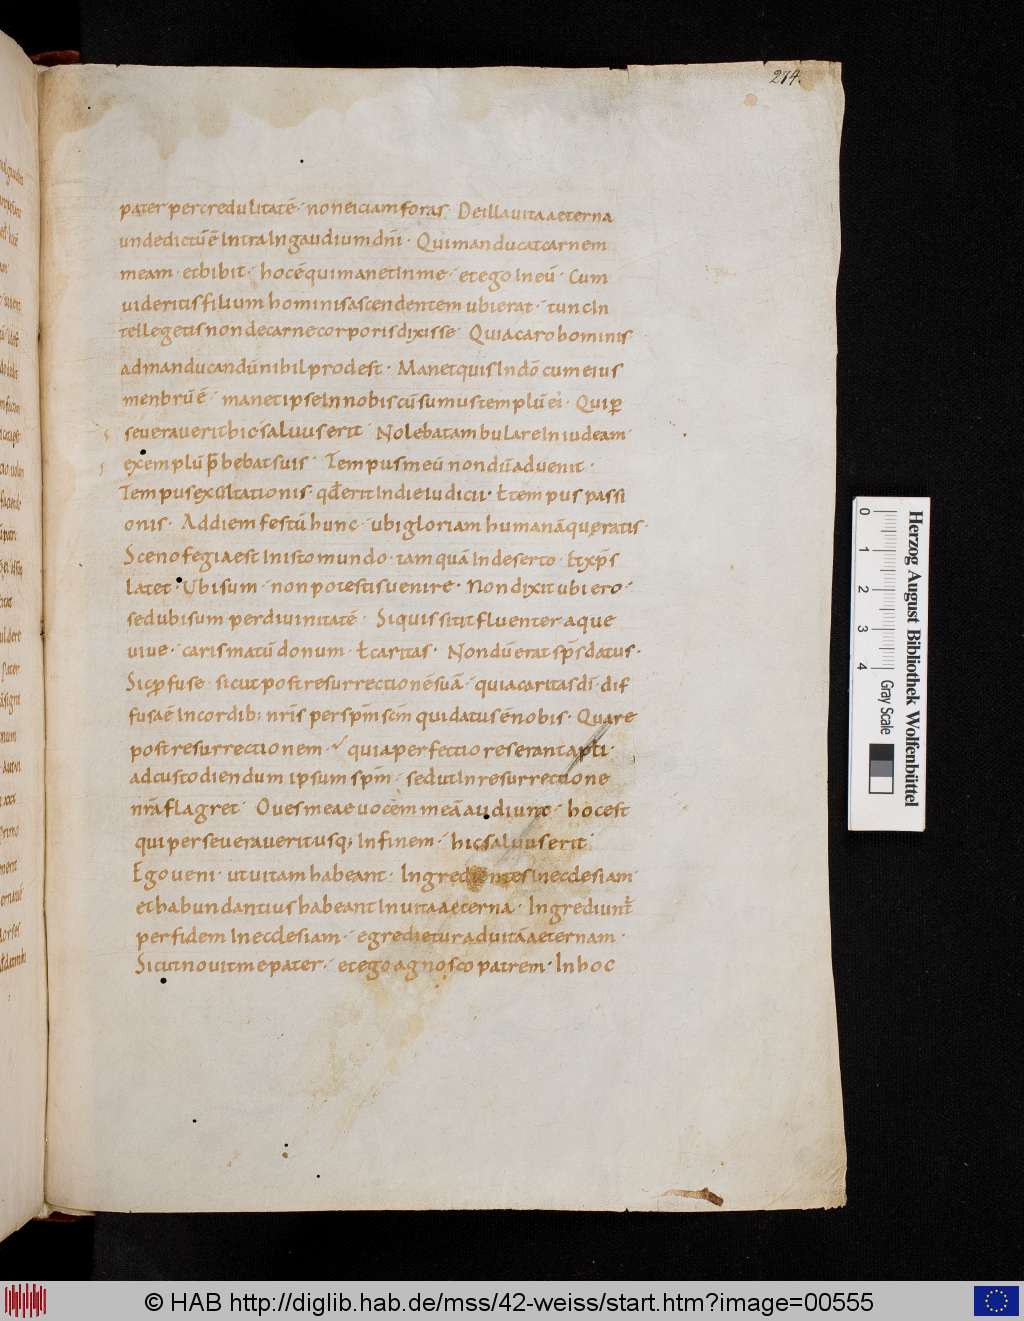 274.
pater percredulitatē · non eiciam foras · De illa uita aeterna
unde dictū ē Intra In gaudium dn̄i · Qui manducat carnem
meam · et bibit · hoc ē qui manet In me · et ego In eū · Cum
uideritis filium hominis ascendentem ubi erat · tunc In
tellegetis non de carne corporis dixisse · Quia caro hominis
ad manducandū nihil prodest · Manet quis In dō cum eius
menbrū ē · manet ipse In nobis cū sumus templū ei · Qui ꝑ
seuerauerit hic saluus erit Nolebat ambulare In iudeam ·
exemplū p̄bebat suis · Tempus meū nondū aduenit ·
Tempus exaltationis · qd̄ erit In die iudicii · ł tempus passi
onis · Ad diem festū hunc · ubi gloriam humanā quęratis ·
Scenofegia est In isto mundo · tamquā In deserto · ł xp̄s
latet · Ubi sum · non potestis uenire · Non dixit ubi ero ·
sed ubi sum per diuinitatē · Si quis sitit fluenter aque
uiue · carismatū donum · ł caritas · Nondū erat sp̄s datus ·
Sic ꝓfuse · sicut post resurrectionē suā · quia caritas dī · dif
fusa ē In cordib; nr̄is per sp̄m sc̄m qui datus ē nobis · Quare
post resurrectionem · quia perfectio reserant apti ·
ad custodiendum ipsum sp̄m · sed ut In resurrectione
nr̄a flagret · Oues meae uocem meā audiunt · hoc est
qui perseuerauerit usq; In finem · hic saluus erit
Ego ueni · ut uitam habeant · Ingredientes In ecclesiam ·
et habundantius habeant In uita aeterna · Ingrediunt̄
per fidem In ecclesiam · egredietur ad uitā aeternam ·
Sicut nouit me pater · et ego agnosco patrem · In hoc
0 1 2 3 4
Gray Scale
Herzog August Bibliothek Wolfenbüttel
© HAB http://diglib.hab.de/mss/42-weiss/start.htm?image=00555